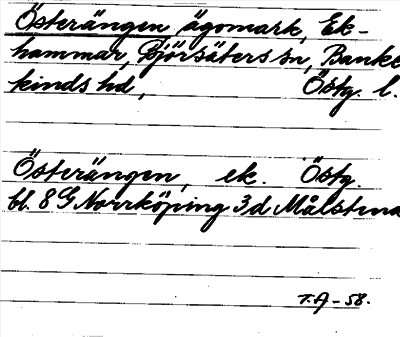 Österängen ägomark, Ek-
hammar, Björsäters sn, Banke
kinds hd, Östg. l.
Österängen, ek. Östg.
bl. 8 G Norrköping 3d Målstena
T.A-58.